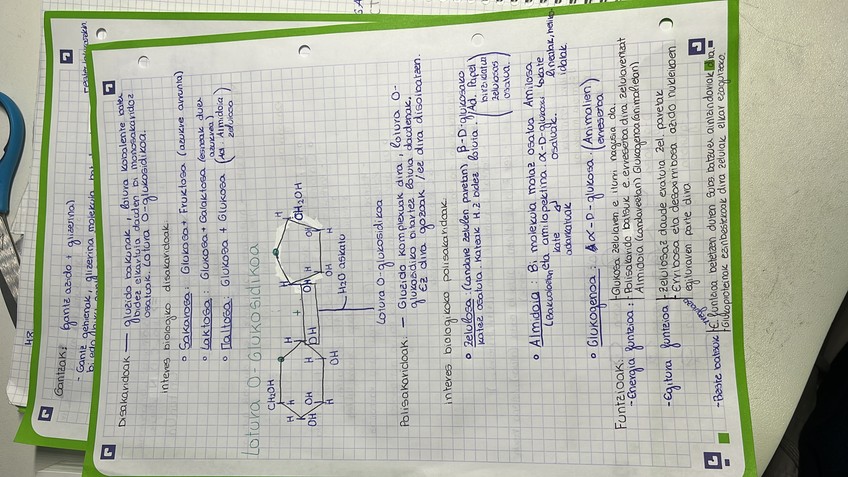 Gantzak: (gantz azido + glizerina)
- Gantz gehienak, glizerina molekula
Disakaridoak — gluzido bakunak, lotura kobalente baten
bidez elkartuta dauden bi monosakaridoz
osatuak. Lotura O-glukosidikoa.
interes biologiko disakaridoak
• Sakarosa: Glukosa + Fruktosa (azukre arrunta)
• Laktosa: Glukosa + Galaktosa (esneak duen
azukrea)
• Maltosa: Glukosa + Glukosa (Ad Almidoia
zelulosa)
Lotura O-Glukosidikoa
CH2OH
H
H
OH
OH
H
H
OH
H
OH
+
OH
H
H
OH
H
CH2OH
H2O askatu
Lotura O-glukosidikoa
Polisakaridoak — Gluzido komplexuak dira, lotura O-
glukosidiko bitartez lotuta daudenak.
Ez dira gozoak / ez dira disolbatzen.
interes biologikoko polisakaridoak.
• Zelulosa (landare zelulen paretan) β-D-glukosako
katez osatuta. Kateak H.z bidez lotuta. (Ad. Papel
birziklatua
zelulosaz
osatua.)
• Almidoia: Bi molekula motaz osatua Amilosa
eta amilopektina. α-D-glukosa katez
osatuak.
• Glukogenoa: α-D-glukosa. (Animalien)
erreserba
Funtzioak:
- Energia funtzioa: Glukosa zelularen e. iturri nagusia da.
Polisakarido batzuk e. erreserba dira zelularentzat
Almidoia (landareetan) Glukogenoa (animalietan)
- Egitura funtzioa - zelulosaz daude eratuta zel. paretak
- Erribosa eta desoxirribosa azido nukleikoen
egituraren parte dira
- Beste batzuk